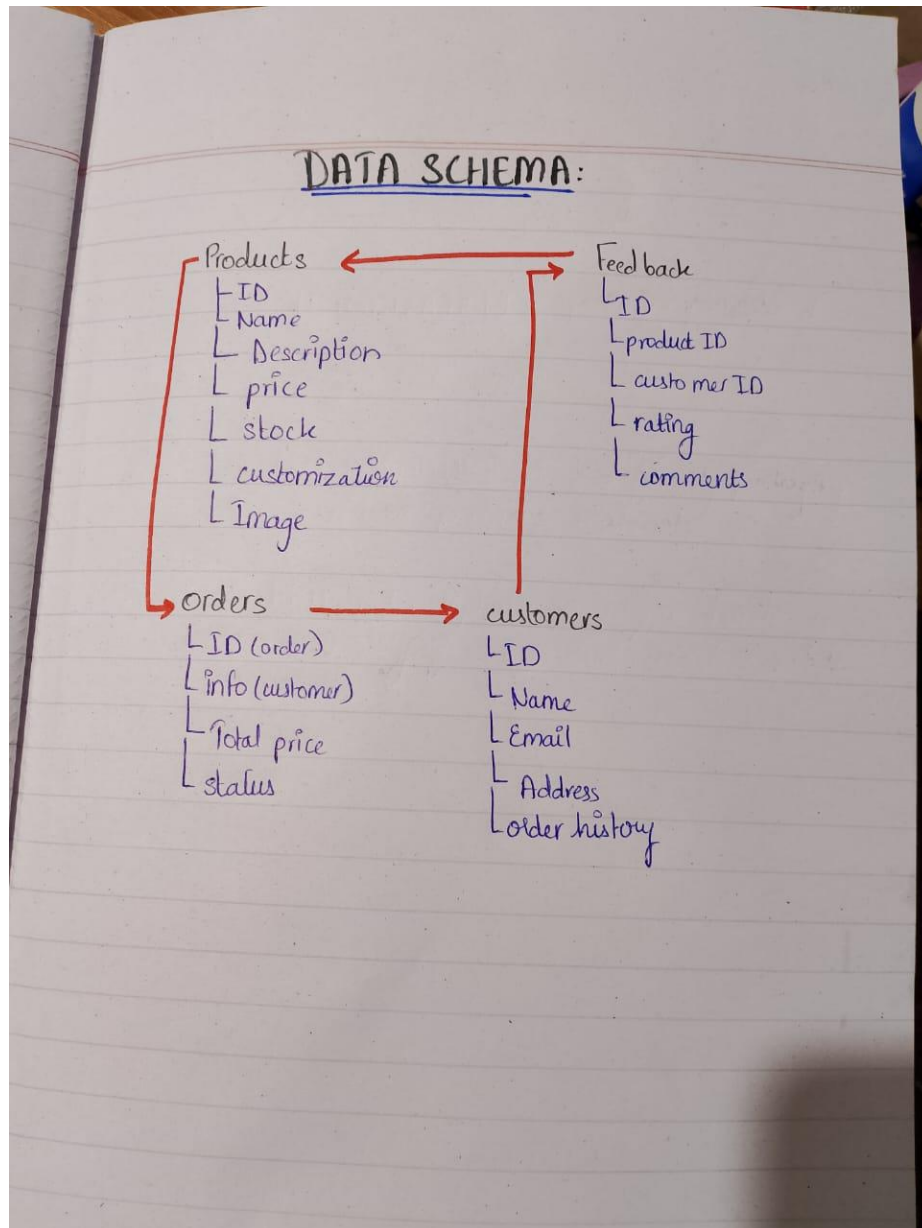 DATA SCHEMA:
Products
ID
Name
Description
price
stock
customization
Image
Feedback
ID
product ID
customer ID
rating
comments
orders
ID (order)
info (customer)
Total price
status
customers
ID
Name
Email
Address
order history